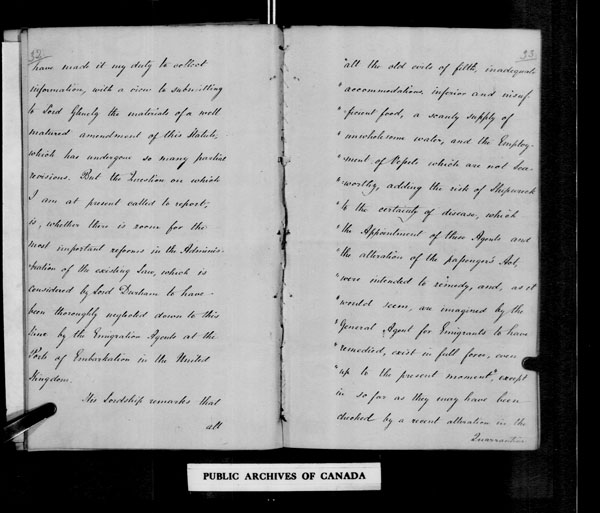 32
have made it my duty to collect
information, with a view to submitting
to Lord Glenelg the materials of a well
matured amendment of this Statute,
which has undergone so many partial
revisions. But the Question on which
I am at present called to report,
is, whether there is room for the
most important reforms in the Adminis-
tration of the existing Law, which is
considered by Lord Durham to have
been thoroughly neglected down to this
time by the Emigration Agents at the
Ports of Embarkation in the United
Kingdom.
His Lordship remarks that
all
33
"all the old evils of filth, inadequate
"accommodations, inferior and insuf-
"ficient food, a scanty supply of
"unwholesome water, and the Employ-
"ment of Vessels which are not Sea-
"worthy, adding the risk of Shipwreck
"to the certainty of disease, which
"the Appointment of these Agents and
"the alteration of the passengers Act,
"were intended to remedy, and, as it
"would seem, are imagined by the
"General Agent for Emigrants to have
"remedied, exist in full force, even
"up to the present moment", except
in so far as they may have been
checked by a recent alteration in the
Quarrantine
PUBLIC ARCHIVES OF CANADA